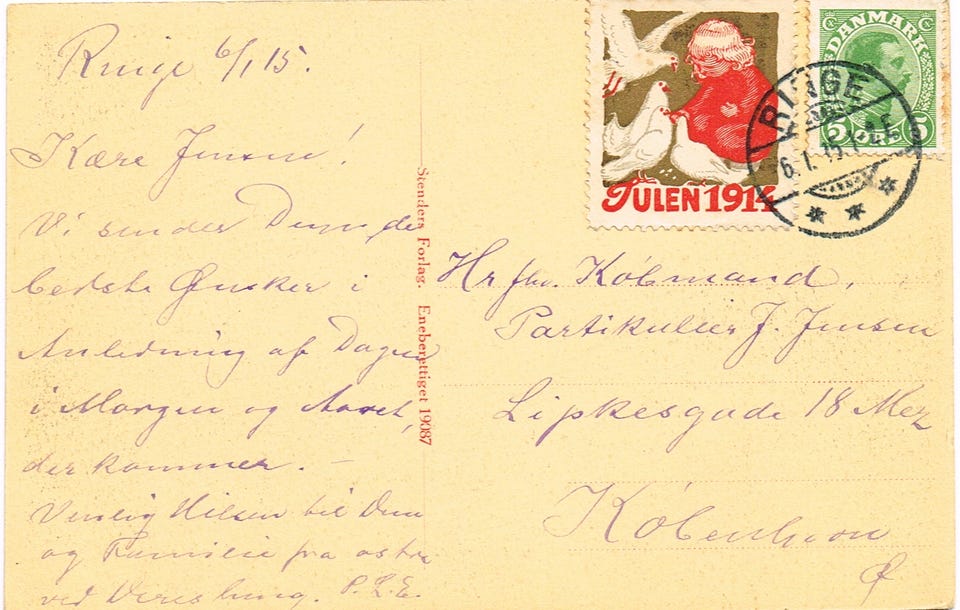 Ringe 6/1 15.
Kære Jensen!
Vi sender Dem de
bedste Ønsker i
Anledning af Dagen
i Morgen og Aaret,
der kommer. –
Venlig Hilsen til Dem
og Familie fra os
ved
Stenders Forlag. Eneberettiget 19087
JULEN 1914
DANMARK
5 ØRE 5
RINGE
6.1.15
Hr fhv. Købmand,
Partikulier J. Jensen
Lipkesgade 18 Mez
København
Ø